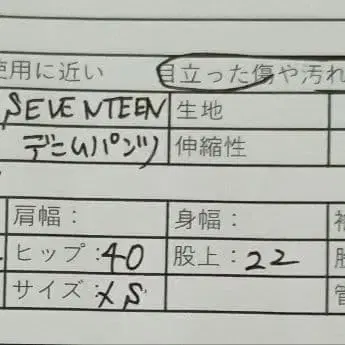 使用に近い 目立った傷や汚れ
SEVENTEEN 生地
デニムパンツ 伸縮性
肩幅： 身幅：
ヒップ：40 股上：22
サイズ：XS